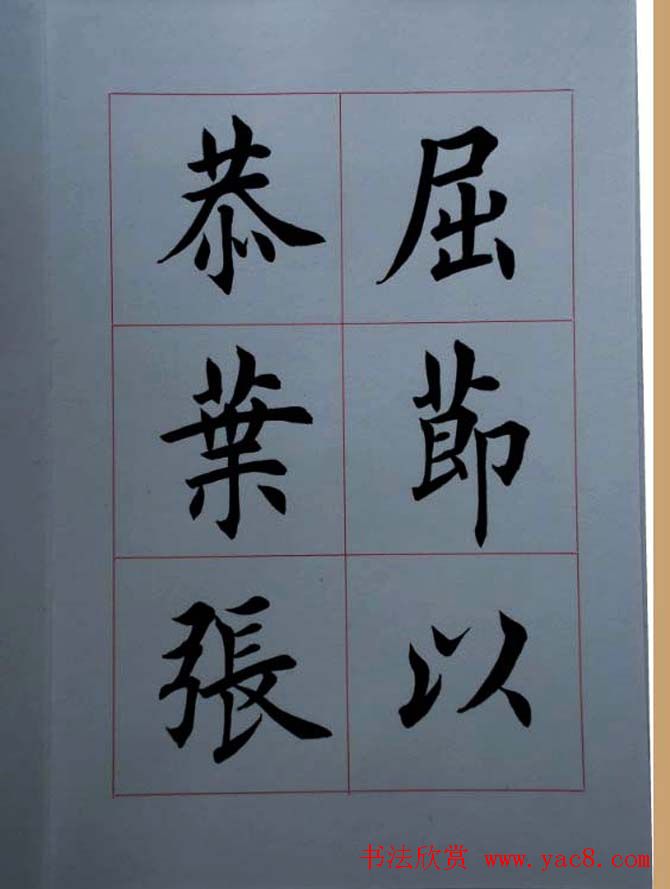 屈節以
恭葉張
书法欣赏 www.yac8.com